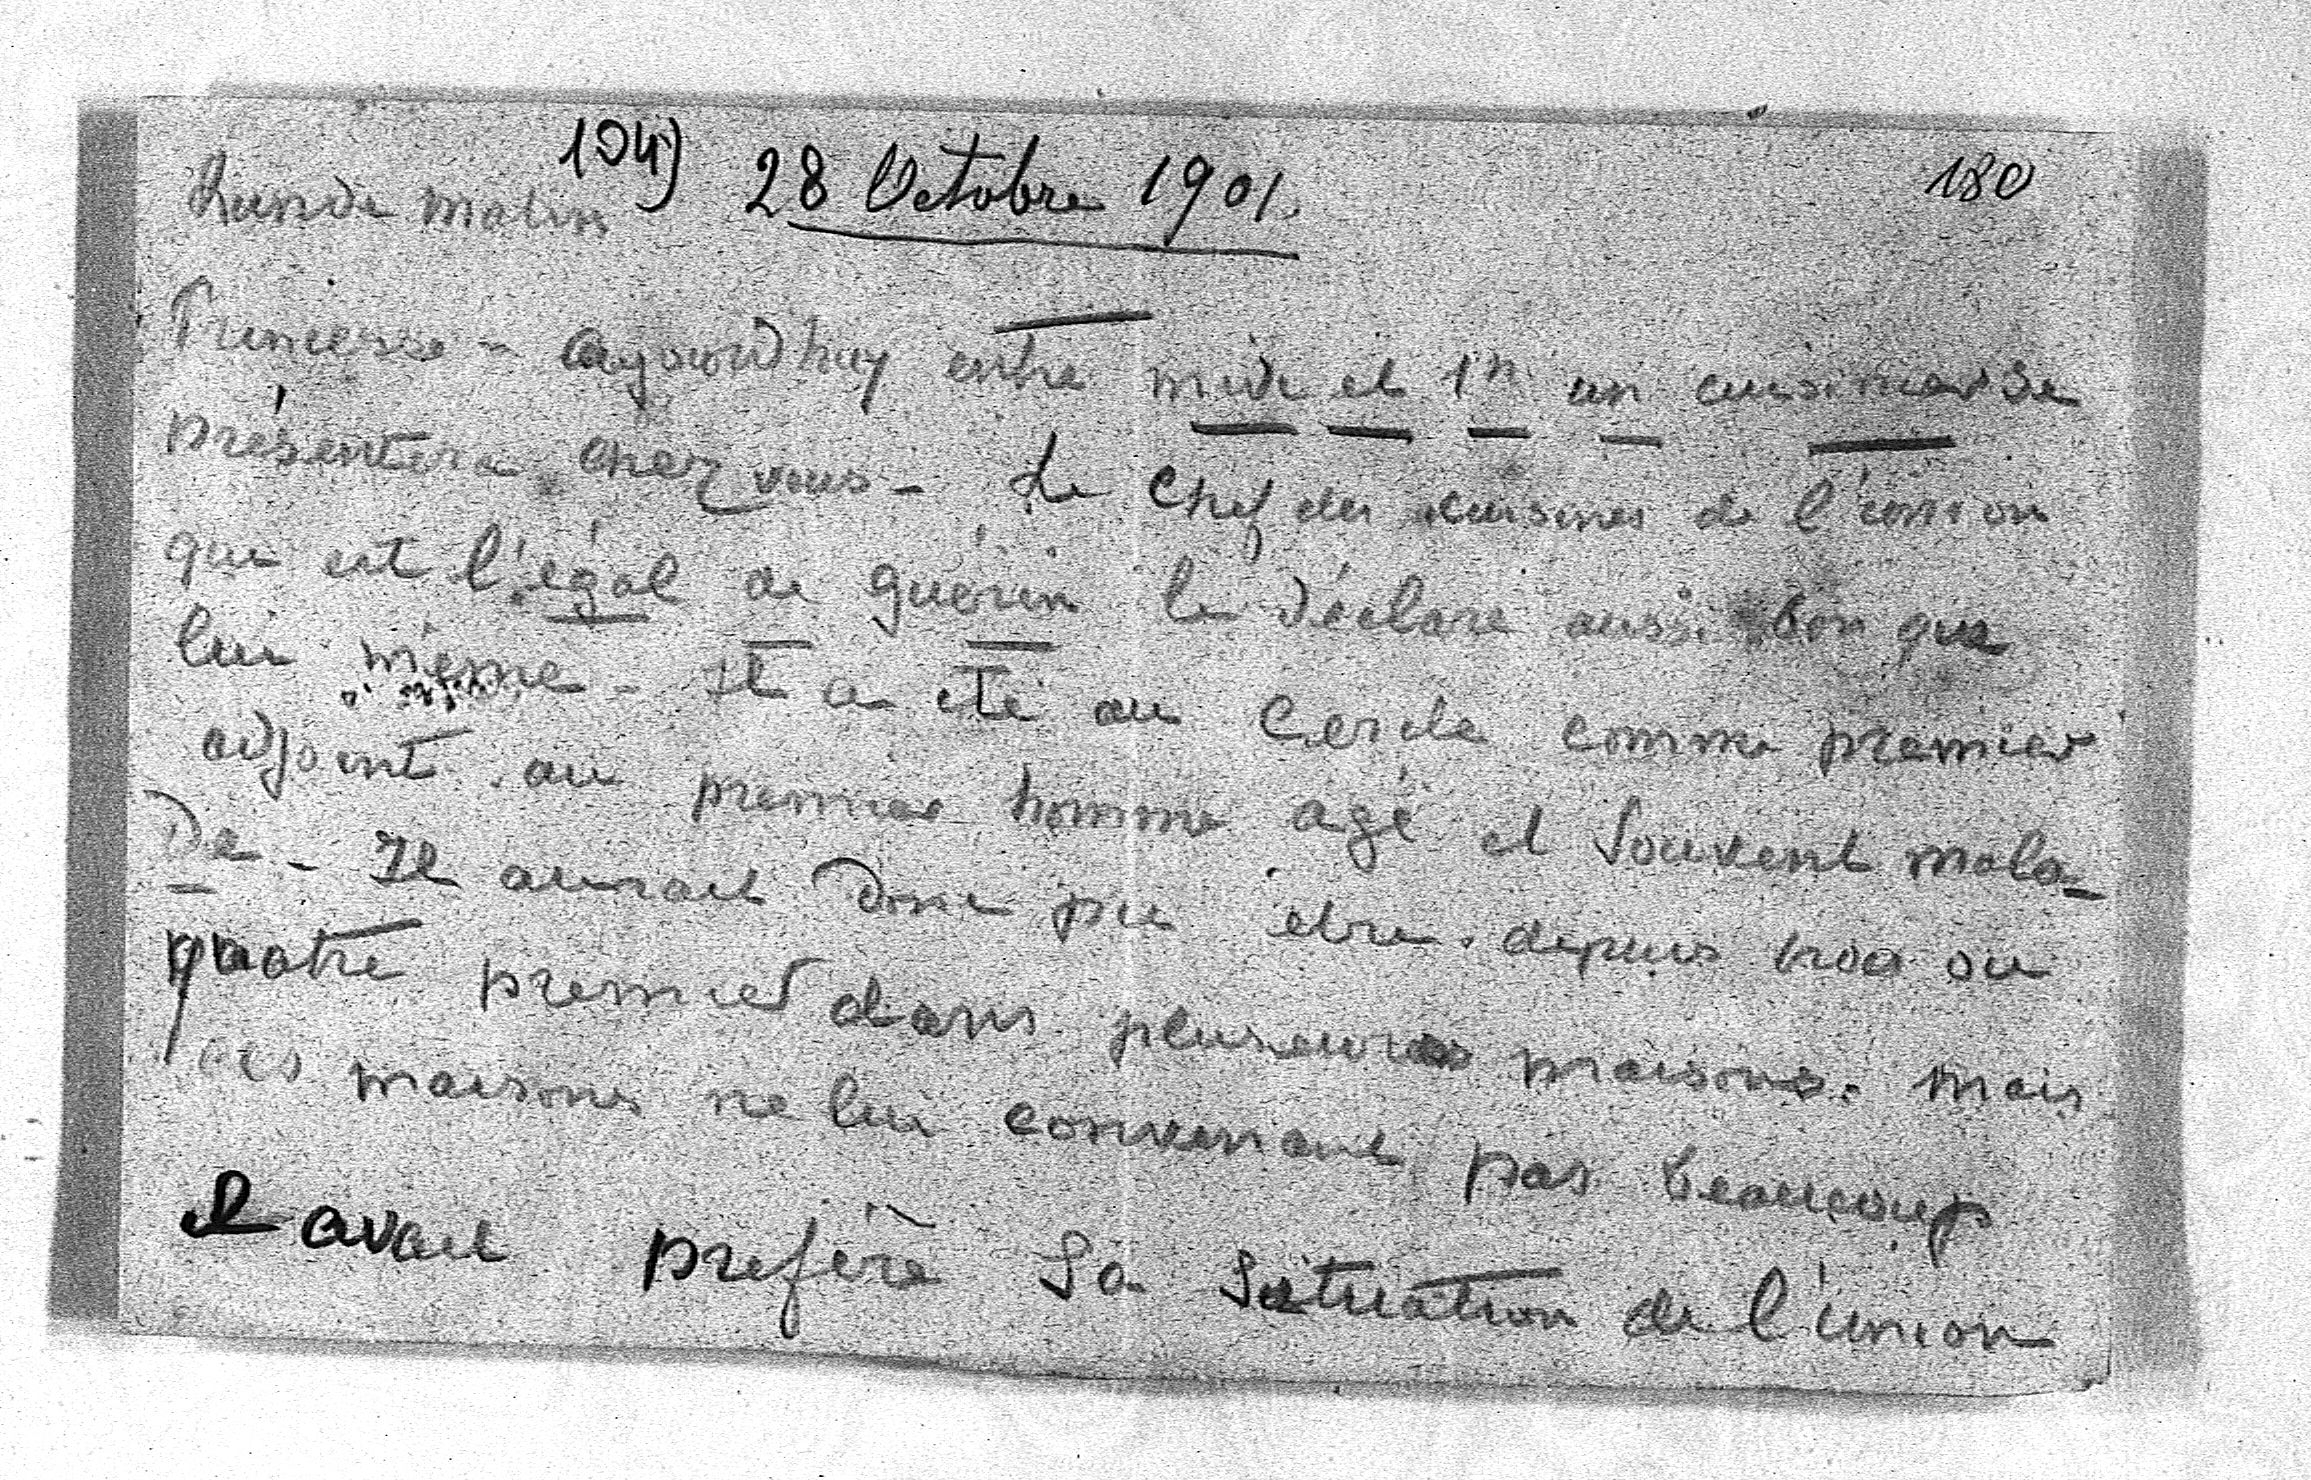 104) 28 Octobre 1901. 180
Lundi matin
Princesse - aujourd'huy entre midi et 1h un cuisinier se
présentera chez vous - Le chef des cuisines de l'union
qui est l'égal de guérin le déclare aussi bon que
lui même - Il a été au Cercle comme premier
adjoint au premier homme agé et souvent mala-
de - Il aurait donc pu etre depuis trois ou
quatre premier dans plusieurs maisons. mais
ces maisons ne lui convenant pas beaucoup
il avait preféré sa situation de l'union